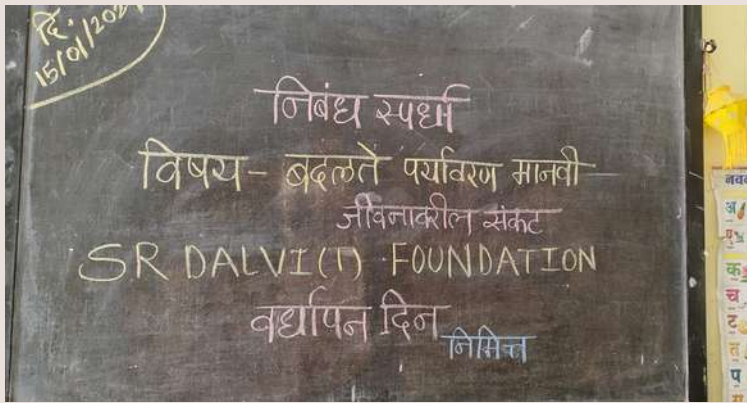 दि.
निबंध स्पर्धा
विषय - बदलते पर्यावरण मानवी
जीवनावरील संकट
S.R DALVI(I) FOUNDATION
वर्धापन दिन
निमित्त
अ
क
च
ट
त
प